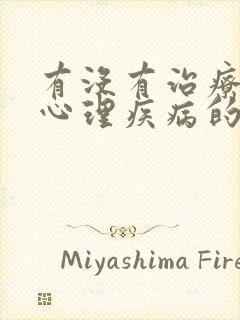 有没有治療
心理疾病的
Miyashima Fire